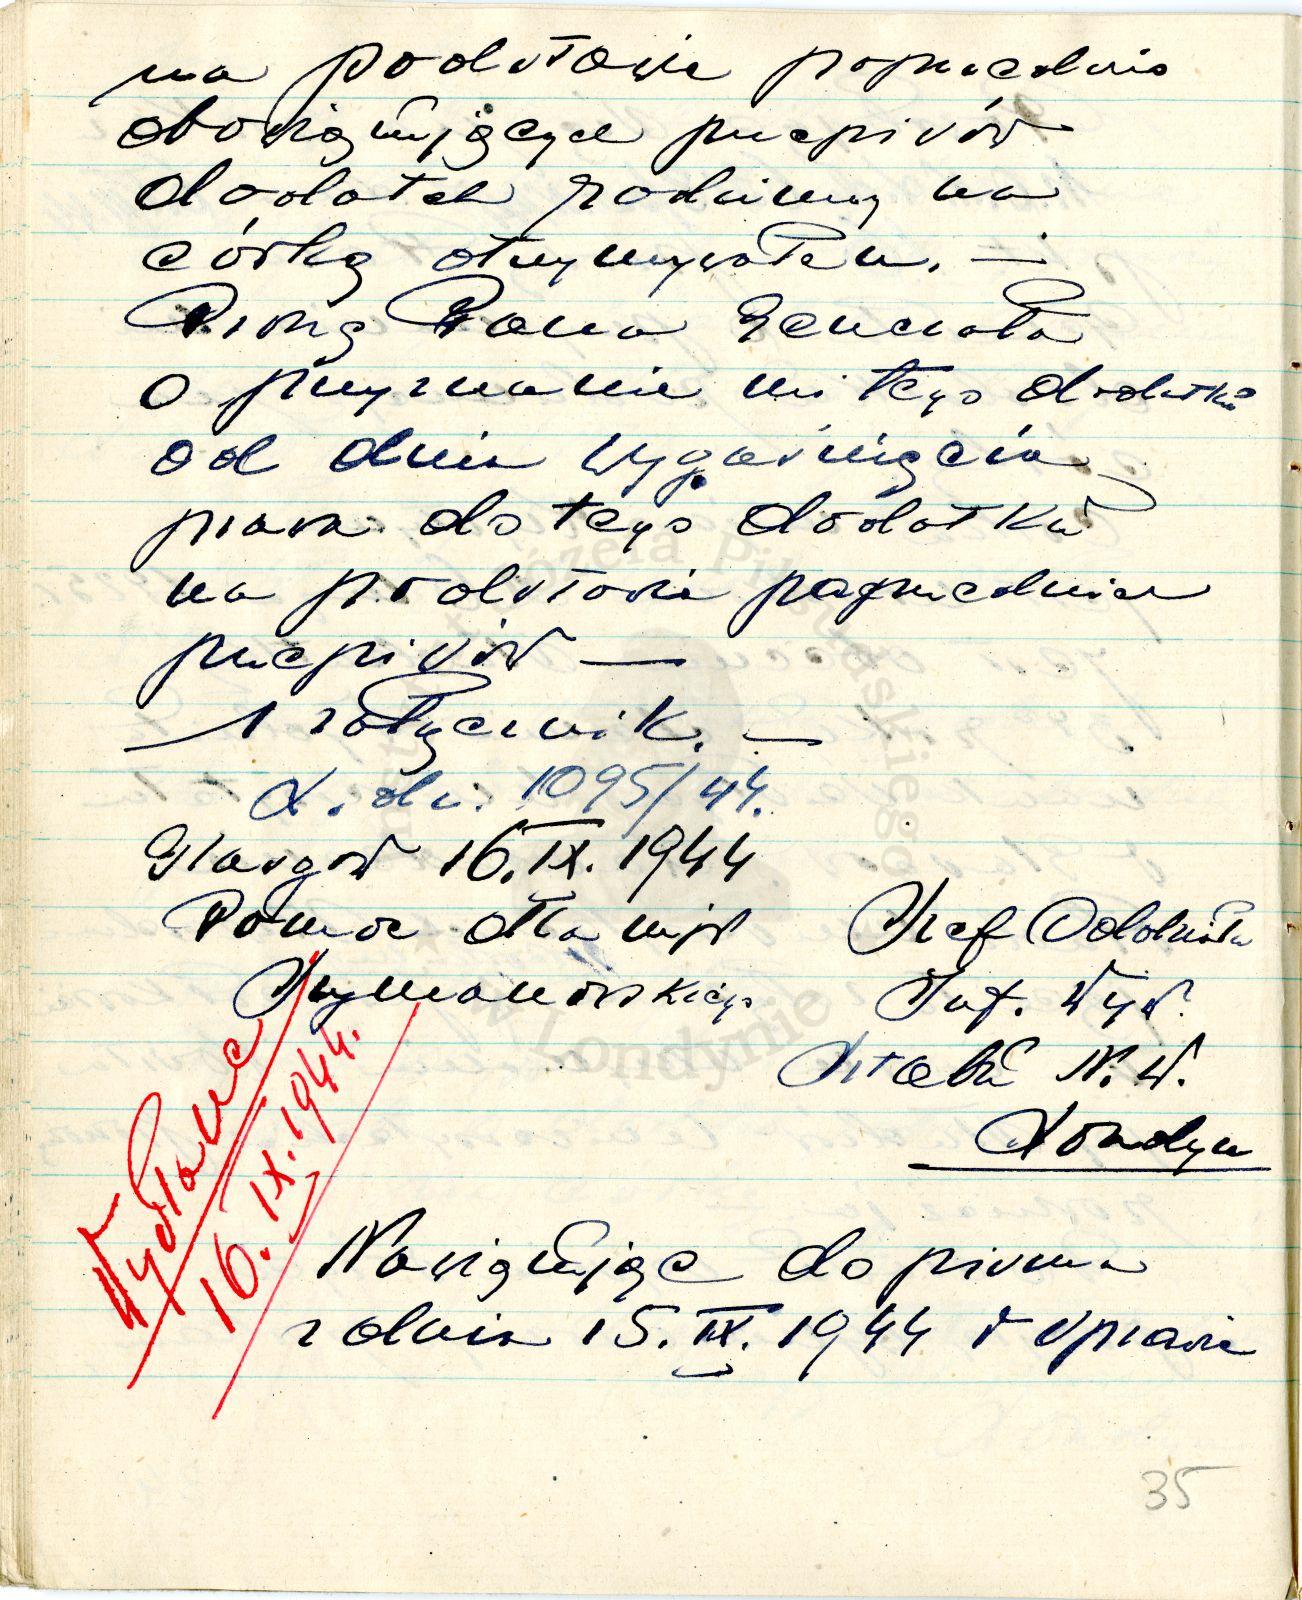 na podstawie poprzednio
obowiązujących przepisów
dodatek rodzinny na
córkę otrzymywałem. —
Proszę Pana Generała
o przyznanie mi tego dodatku
od dnia wygaśnięcia
prawa do tego dodatku
na podstawie poprzednich
przepisów —
1 załącznik. —
L. dz. 1095/44.
Glasgow 16.IX.1944
Pomoc dla mjr Szef Oddziału
Szymanowskiego Inf. Wyw.
Sztabu N.W.
Londyn
Wysłane
16.IX.1944.
Nawiązując do pisma
z dnia 15.IX.1944 w sprawie
35
Józefa Piłsudskiego
w Londynie